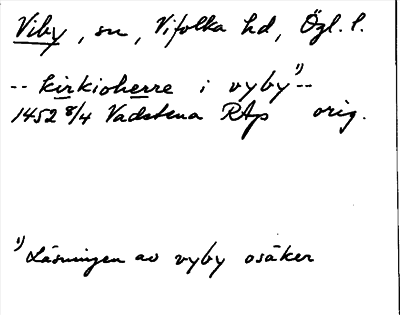 Viby, sn, Vifolka hd, Ögl. l.
-- kirkioherre i vyby¹⁾--
1452 8/4 Vadstena RAp orig.
¹⁾ Läsningen av vyby osäker